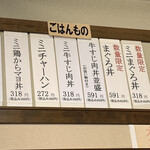 ごはんもの
数量限定
まぐろ丼
591円
数量限定
ミニまぐろ丼
318円
牛すじ肉丼並盛
591円
ミニ牛すじ肉丼
318円
ミニチャーハン
272円
ミニ鶏からマヨ丼
318円